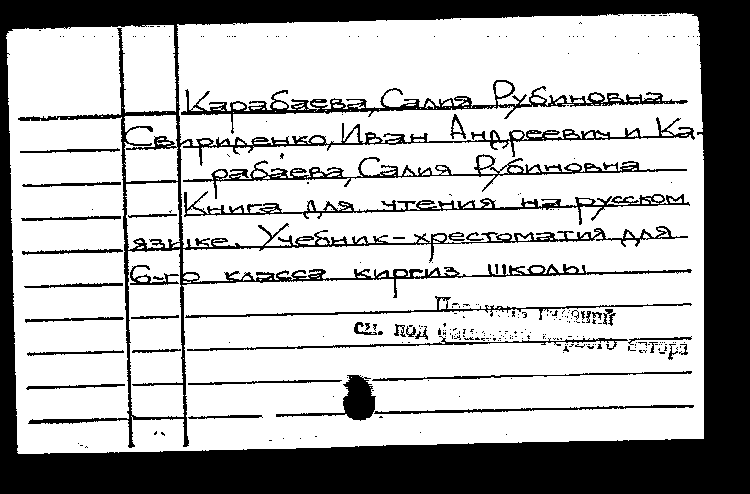 Карабаева, Салия Рубиновна
Свириденко, Иван Андреевич и Ка-
рабаева, Салия Рубиновна
Книга для чтения на русском
языке. Учебник-хрестоматия для
6-го класса киргиз. школы
Перечень изданий
см. под фамилией первого автора